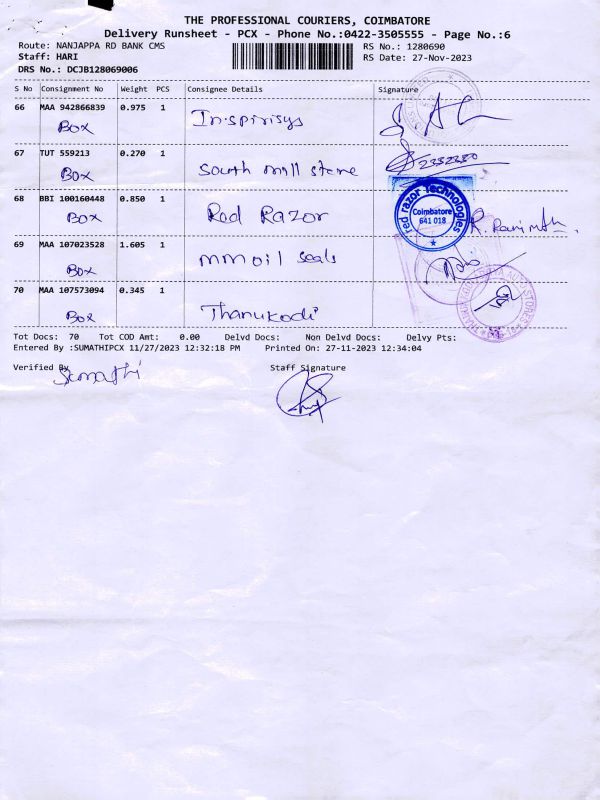 THE PROFESSIONAL COURIERS, COIMBATORE
Delivery Runsheet - PCX - Phone No.:0422-3505555 - Page No.:6
Route: NANJAPPA RD BANK CMS RS No.: 1280690
Staff: HARI RS Date: 27-Nov-2023
DRS No.: DCJB128069006
S No Consignment No Weight PCS Consignee Details Signature
66 MAA 942866839 0.975 1 Inspirisys
BOX
67 TUT 559213 0.270 1 South mill stone 2332330
BOX
68 BBI 100160448 0.850 1 Red Razor
BOX
red razor Technologies
Coimbatore
641 018
69 MAA 107023528 1.605 1 mm oil seals
BOX
70 MAA 107573094 0.345 1 Thanukodi
BOX
Tot Docs: 70 Tot COD Amt: 0.00 Delvd Docs: Non Delvd Docs: Delvy Pts:
Entered By :SUMATHIPCX 11/27/2023 12:32:18 PM Printed On: 27-11-2023 12:34:04
Verified By Staff Signature
Sumathi